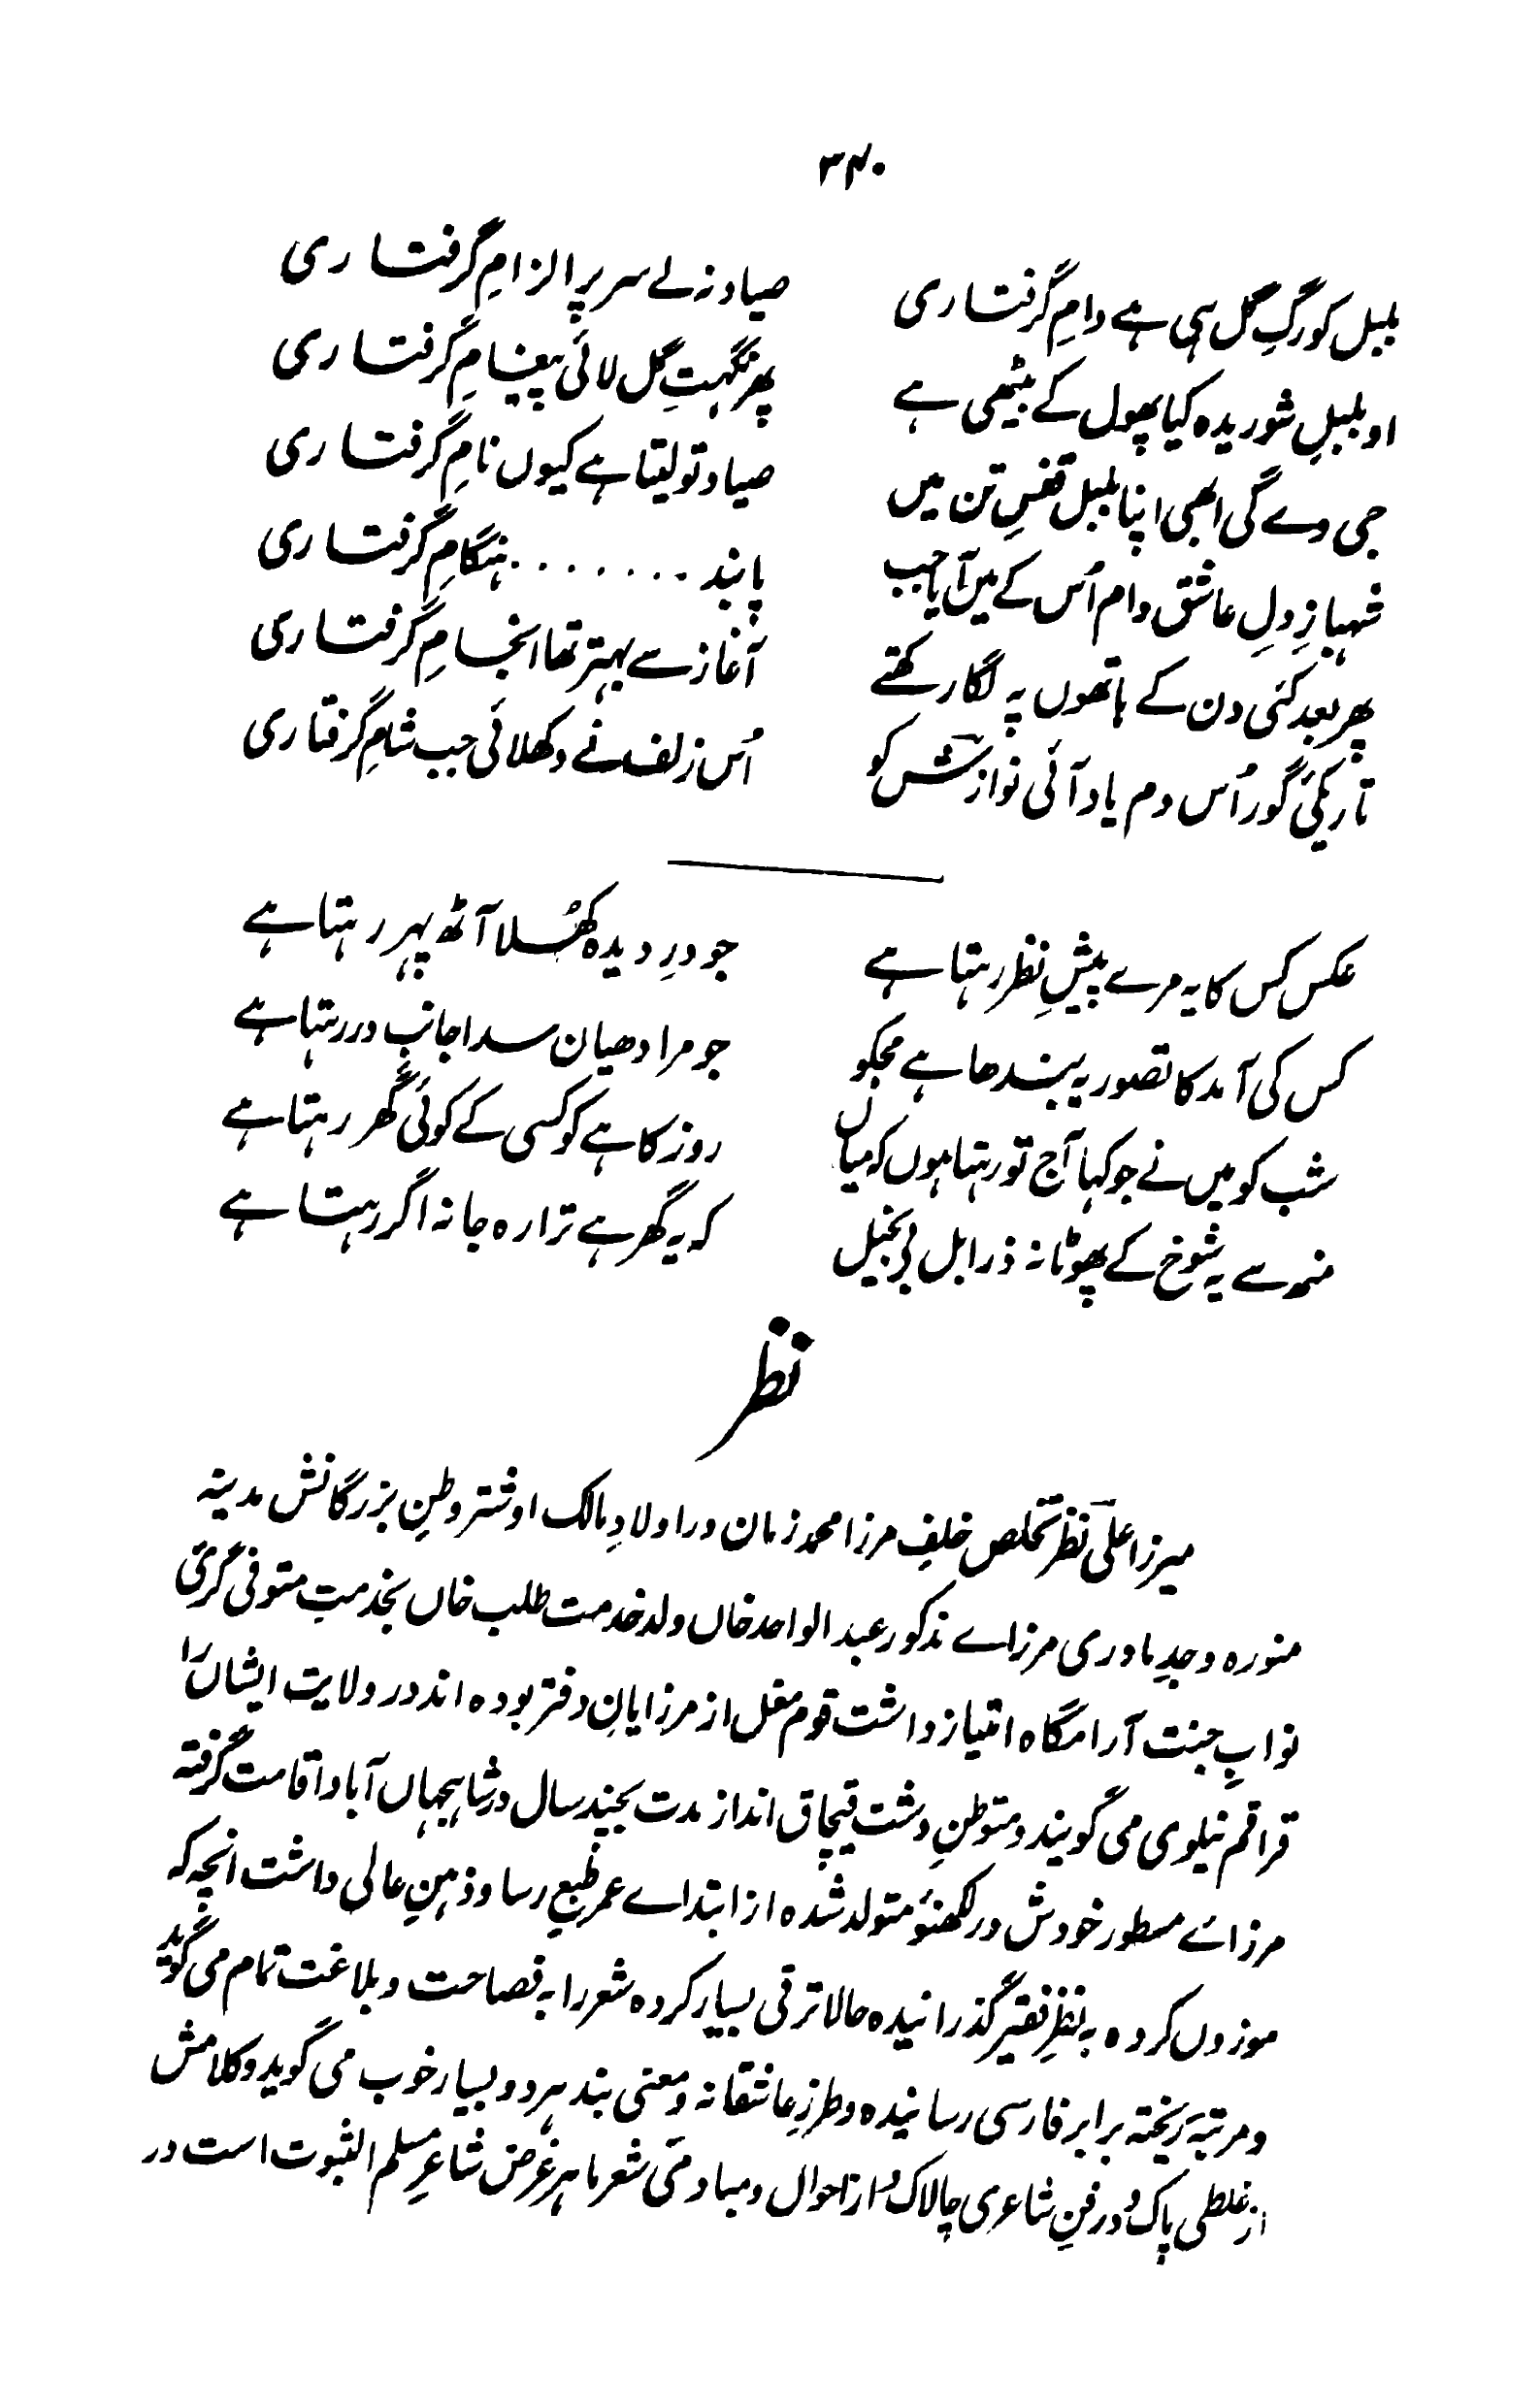 ۳۴۰
بلبل کو رگِ گل ہی ہے دامِ گرفتاری صیاد نہ لے سر پر الزامِ گرفتاری
او بلبلِ شوریدہ کیا پھول کے بیٹھی ہے پھر نگہتِ گل لائی پیغامِ گرفتاری
جی دے گی ابھی اپنا بلبل قفسِ تن میں صیاد تو لیتا ہے کیوں نامِ گرفتاری
شہبازِ دلِ عاشق دام اُس کے میں آیا جب پابند ........ ہنگامِ گرفتاری
پھر بعد کئی دن کے ہاتھوں پہ لگا رکھتے آغاز سے بہتر تھا انجامِ گرفتاری
تاریکیٔ گور اُس دم یاد آئی نوازش کو اُس زلف نے دکھلائی جب شامِ گرفتاری
عکس کس کا یہ مرے پیشِ نظر رہتا ہے جو درِ دیدہ کھُلا آٹھ پہر رہتا ہے
کس کی آمد کا تصور یہ بندھا ہے مجکو جو مرا دھیان سدا جانبِ در رہتا ہے
شب کو میں نے جو کہا آج تو رہتا ہوں کہ میاں روز کاہے کو کسی کے کوئی گھر رہتا ہے
منہ سے یہ شوخ کے پھوٹا نہ ذرا بل بے بخیل کہ یہ گھر ہے ترا رہ جا نہ اگر رہتا ہے
نظر
میرزا علی نظر تخلص خلفِ مرزا محمد زمان در اولادِ مالک اوشتر وطنِ بزرگانش مدینہ
منورہ و جدِ مادری مرزاے مذکور عبد الواحد خاں ولد خدمت طلب خاں بخدمتِ متوفی گری
نوابِ جنت آرامگاہ امتیاز داشت قوم مغل از مرزایانِ دفتر بودہ اند در ولایت ایشاں را
قراقم نیلوی می گویند و متوطنِ دشت قپچاق اند از مدت بچند سال در شاہجہاں آباد اقامت گرفتہ
مرزائے مسطور خودش در لکھنؤ متولد شدہ از ابتداے عمر طبعِ رسا و ذہنِ عالی داشت انچہ کہ
موزوں کردہ بہ نظرِ فقیر گذرانیدہ حالا ترقی بسیار کردہ شعر را بہ فصاحت و بلاغت تمام می گوید
و مرتبۂ ریختہ برابر فارسی رسانیدہ و طرزِ عاشقانہ و معنی بند ہر دو بسیار خوب می گوید و کلامش
از غلطی پاک و در فنِ شاعری چالاک و از احوال و مبادمیٔ شعر ماہر غرض شاعرِ مسلم الثبوت است در